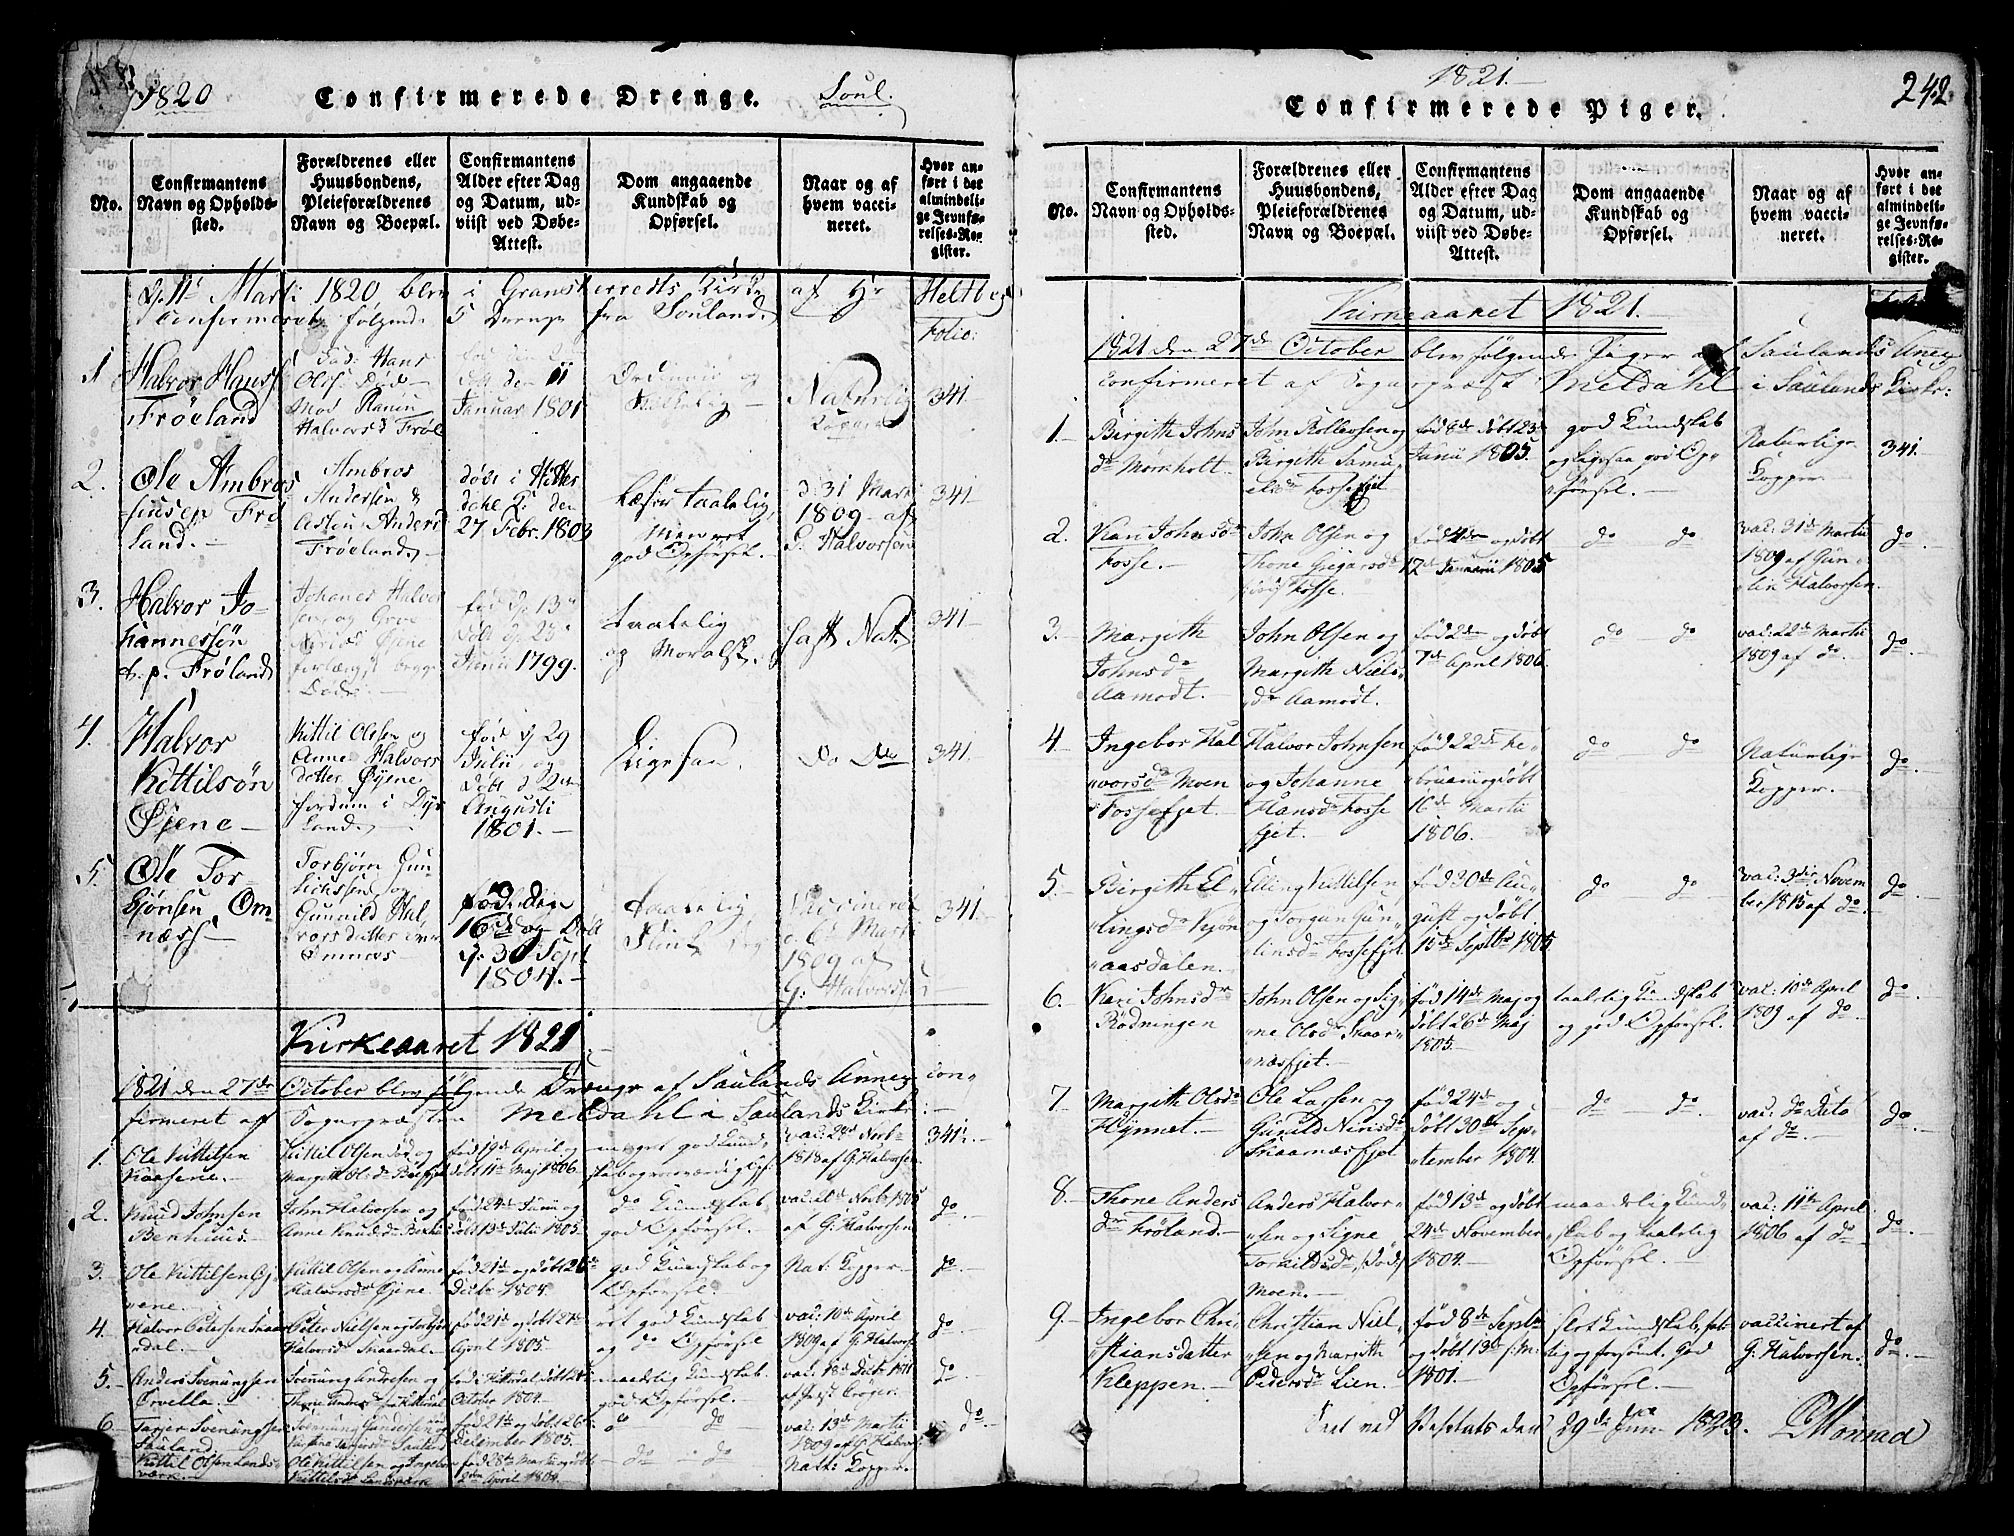 1820
Confirmerede Drenge.
Soul.
No.
Confirmantens
Navn og Opholds-
sted.
Forældrenes eller
Huusbondens,
Pleieforældrenes
Navn og Boepæl.
Confirmantens
Alder efter Dag
og Datum, ud-
viist ved Døbe-
Attest.
Dom angaaende
Kundskab og
Opførsel.
Naar og af
hvem vacci-
neret.
Hvor an-
ført i det
almindeli-
ge Jevnfø-
relses-Re-
gister.
1820 blev i Gransherreds Kirke af Hr Heltberg
Confirmeret følgende 5 Drenge fra Souland
Folio:
1
Halvor Hanss
Frøeland
Fad: Hans
Mod Ranou
Halvorsd Frøl
Januar 1801
Naturlig
Kopper
341
2.
Ole Ambros
siusen Frø
land.
Ambros
Andersen &
Aslou Anders
Frøeland
døbt i Hitter
dahl K: den
27 Febr. 1803
Læser taalelig,
god Opførsel.
d: 31 Marti
1809 af
G. Halvorsen
341
3.
Halvor Jo-
hannessøn
p. p. Frøland
Johanes Halvor
sen og
Døde
fød d: 13
døbt d: 23
Junii 1799.
taalelig
og Moralsk.
havt Nat.
341
4.
Halvor
Kittilsøn
Øjene
Kittil Olsen og
Anne Halvors
datter Øyene
fordum i
Land
fød d 29
Julii og
døbt d 2den
Augusti
1801.
Ligesaa.
Do Do
341
5.
Ole Tor-
bjönsen Om-
næss
Torbjørn Gun
leichsen og
Gunnild Hal
vorsdatter
Omnæs
fød den
16de og døbt
d: 30 Sept
1804.
Taalelig
Vaccineret
d. 6te Marti
1809 af
G. Halvorssen
341
Kirkeaaret 1821.
1821 den 27de October blev følgende Drenge af Saulands Annex con-
firmeret af Sogurpræsten Meldahl i Saulands Kirke
1.
Ole Kittilsen
Kaasene.
Kittil Olsen
Margith Olsdr
fød 19de April og
døbt 11te Maj 1806.
meget god Kund-
skab og
vac: 23de Novb
1818 af G: Halvorsen.
341.
2.
Knud Johnsen
Benhuus.
John Halvorsen og
Anne Knudsdr Benhus
fød 24de Junii og
døbt 13de Julii 1805.
do Kundskab
god Opførsel.
vac: Novbr
af G: Halvorsen
do
3.
Ole Kittilsen Øj-
ene.
Kittil Olsen og Anne
Halvorsdr Øjene
fød 21de og døbt 26de
Decbr 1804.
god Kundskab og
Opførsel.
Nat: Kopper.
do
4.
Halvor Petersen Snaar
dal.
Peter Nielsen og
Halvorsdr Snaardal
fød 21de og døbt 27de
April 1805.
ret god Kundskab
og do Opførsel
vac: 10de April
1809 af G: Halvorsen
do
5.
Anders Svenungsen
Orvella.
Svenung Andresen og
October 1804.
maadelig Kundskab
god Opførsel.
vac: 18de Decbr 1811
do
6.
Tarjer Svenungsen
Sauland
Svenung Gundersen og
fød 21de og døbt 26de
December 1805.
do do
vac: 13de Martii
1809 af G: Halvors
do
Kittil Olsen Lands-
værk.
Ole Kittilsen og Ingebor
Kittilsdr Landsværk
fød 28de Marti og døbt
2den April 1804.
do - do
Nat: Kopper.
1821.
Confirmerede Piger.
242
No.
Confirmantens
Navn og Opholds-
sted.
Forældrenes eller
Huusbondens,
Pleieforældrenes
Navn og Boepæl.
Confirmantens
Alder efter Dag
og Datum, ud-
viist ved Døbe-
Attest.
Dom angaaende
Kundskab og
Opførsel.
Naar og af
hvem vacci-
neret.
Hvor an-
ført i det
almindeli-
ge Jevnfø-
relses-Re-
gister.
Kirkeaaret 1821.
1821 den 27de October blev følgende Piger af Saulands Anex
confirmeret af Sogurpræst Meldahl i Saulands Kirke:
1.
Birgith Johns
dr Mørkholt.
John Rollevsen og
Birgith Samu-
elsdr Fossefjet
fød 8de døbt 23de
Junii 1805.
god Kundskab
og ligesaa god Op-
førsel.
Naturlige
Kopper
341.
2.
Kari Johnsdr
Fosse.
John Olsen og
Thone Gregarsdr
Fosse.
fød 4de og døbt
12de Januarii 1805
do do
vac: 31de Martii
1809 af Gun-
lin Halvorsen.
do.
3.
Margith
Johnsdr
Aamodt.
John Olsen og
Margith Niels-
dr Aamodt.
fød 2den og døbt
7de April 1806.
do do
vac: 22de Martii
1809 af do.
do.
4
Ingebor Hal-
vorsdr Moen
Fossefjet.
Halvor Johnsen
og Johanne
Hansdr Fosse
fjet.
fød 22de Fe-
bruarii og døbt
16de Martii
1806.
do do
Naturlige
Kopper.
do.
5.
Birgith El-
lingsdr Kjøn-
aasdalen.
Elling Kittilsen
og Torgun Gun-
linsdr Fossefjet.
fød 30de Au-
gust og døbt
15de Septbr 1805
do do
vac: 3die Novem
ber 1815 af do.
do.
6.
Kari Johnsdr
Rödningen
John Olsen og Sig-
ne Olsdr Snaar-
næsfjet.
fød 14de Maj og
døbt 26de Maj
1805.
taalelig Kundskab
og god Opførsel.
vac: 10de April
1809 af do.
do.
7.
Margith Olsdr
Hÿnnet.
Ole Larsen og
Gunild Nirisdr
Snaarnæsfjet
fød 24de og
døbt 30de Sep-
tember 1804.
do do.
vac: do Dito
af do.
do.
8.
Thone Anders
dr Frøland.
Anders Halvor-
sen og Signe
Torkildsdr, (död)
Moen.
fød 13de og døbt
24de November
1804.
maadelig Kund-
skab og taalelig
Opførsel.
vac: 11te April
1806 af do
do.
9.
Ingebor Chri-
stiansdatter
Kleppen.
Christian Niel-
sen og Margith
Pedersdr Lien.
fød 8de Septbr
og døbt 13de s: M:
1801.
slet Kundskab,
og forsømt. God
Opførsel.
vaccineret af
G: Halvorsen.
do.
Seet ved Visitats den 29de Juni 1823. Monrad